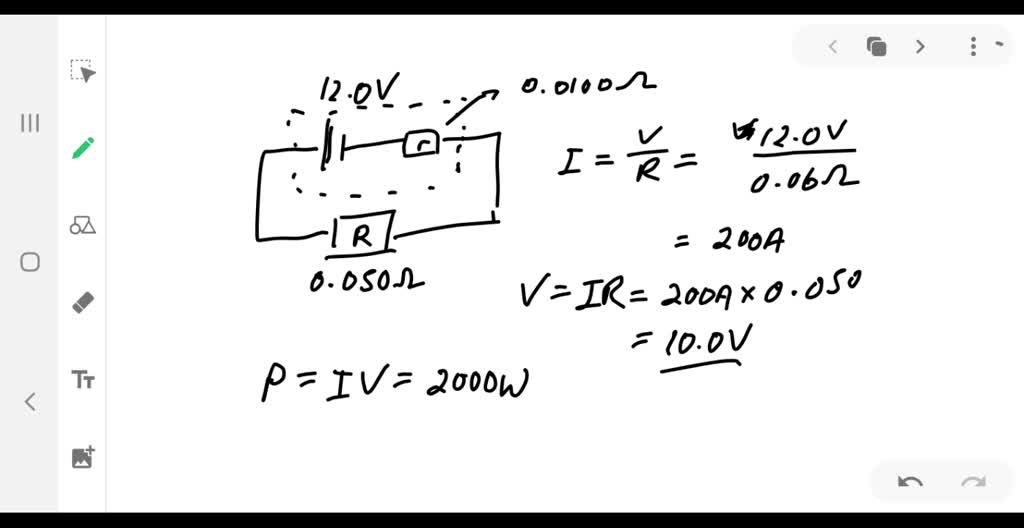 12.0V
0.0100Ω
r
R
0.050Ω
I = V/R = 12.0V/0.06Ω
= 200A
V = IR = 200A × 0.050
= 10.0V
P = IV = 2000W
Tт